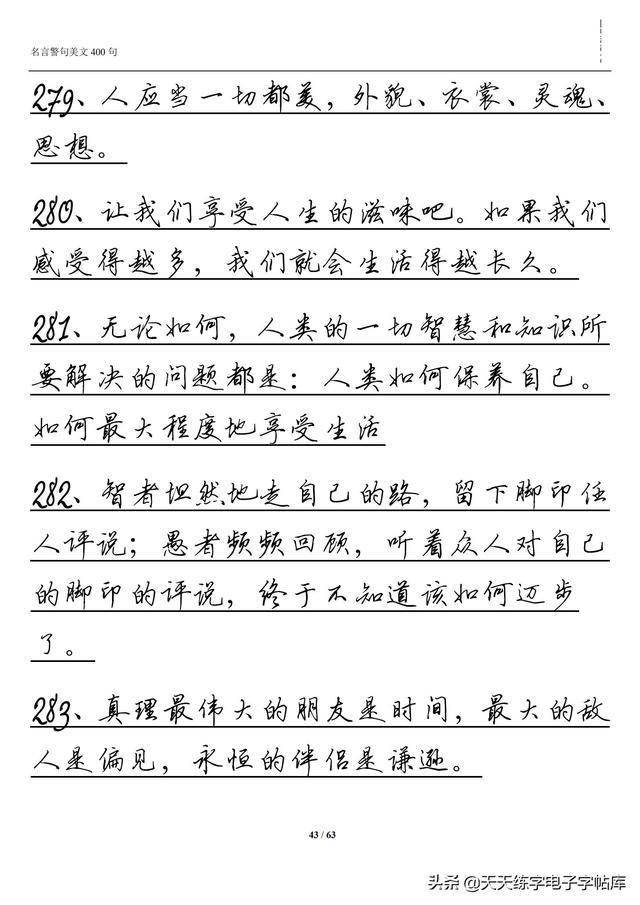 名言警句美文 400 句
279、人应当一切都美，外貌、衣裳、灵魂、
思想。
280、让我们享受人生的滋味吧。如果我们
感受得越多，我们就会生活得越长久。
281、无论如何，人类的一切智慧和知识所
要解决的问题都是：人类如何保养自己。
如何最大程度地享受生活
282、智者坦然地走自己的路，留下脚印任
人评说；愚者频频回顾，听着众人对自己
的脚印的评说，终于不知道该如何迈步
了。
283、真理最伟大的朋友是时间，最大的敌
人是偏见，永恒的伴侣是谦逊。
43 / 63
头条 @天天练字电子字帖库